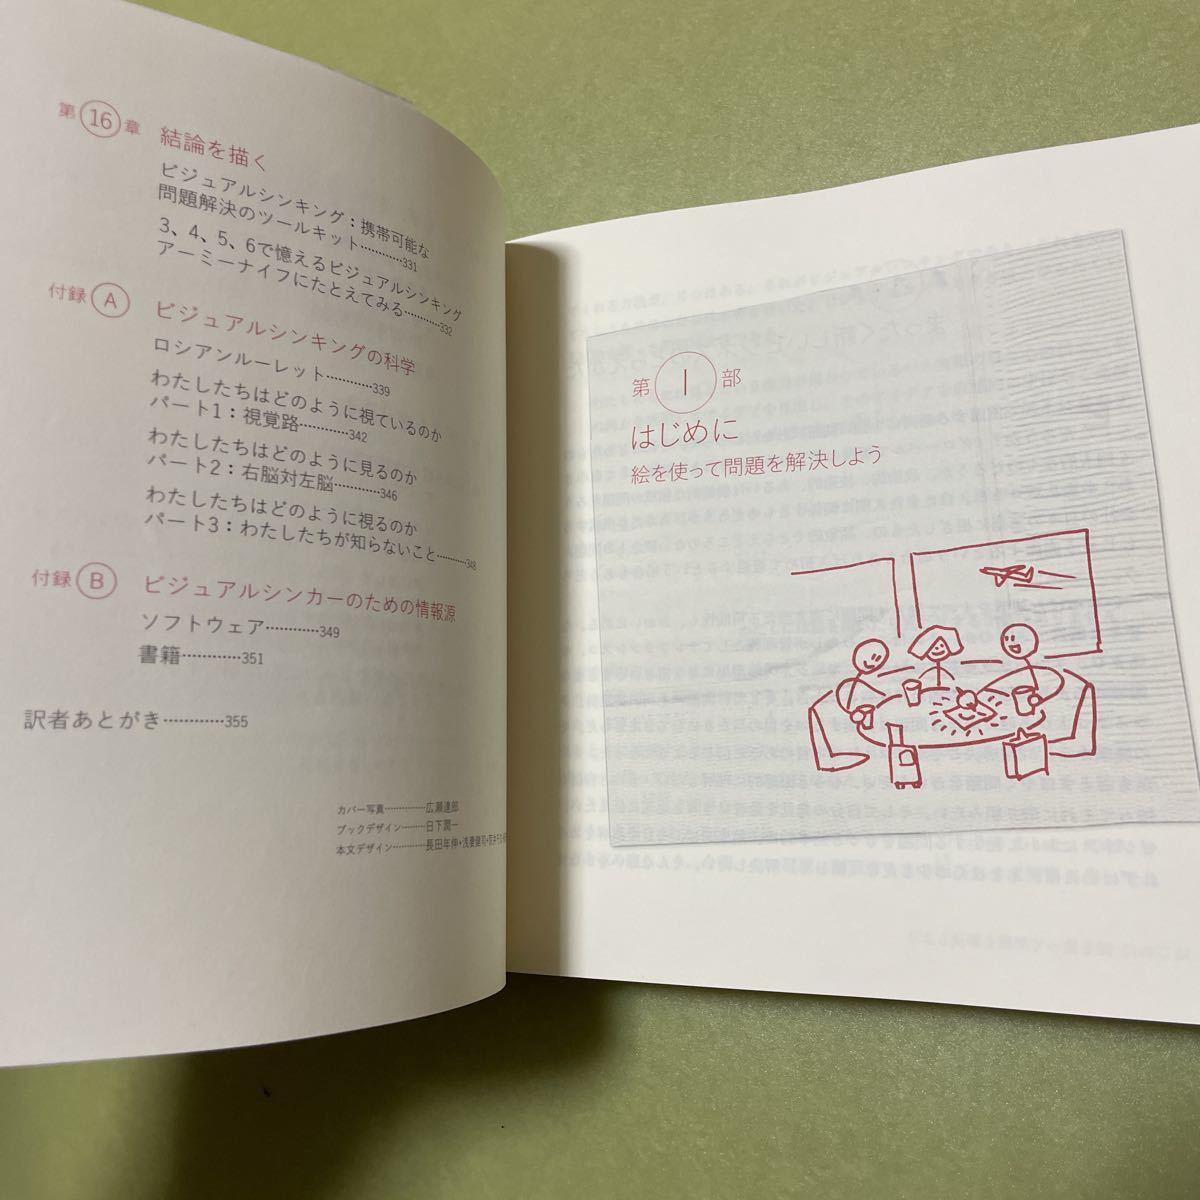 第16章 結論を描く
ビジュアルシンキング：携帯可能な
問題解決のツールキット…………331
3、4、5、6で憶えるビジュアルシンキング
アーミーナイフにたとえてみる…………332
付録A ビジュアルシンキングの科学
ロシアンルーレット…………339
わたしたちはどのように視ているのか
パート1：視覚路…………342
わたしたちはどのように見るのか
パート2：右脳対左脳…………346
わたしたちはどのように視るのか
パート3：わたしたちが知らないこと…………348
付録B ビジュアルシンカーのための情報源
ソフトウェア…………349
書籍…………351
訳者あとがき…………355
カバー写真…………広瀬達郎
ブックデザイン………日下潤一
本文デザイン…………長田年伸+浅妻健司+
第I部
はじめに
絵を使って問題を解決しよう